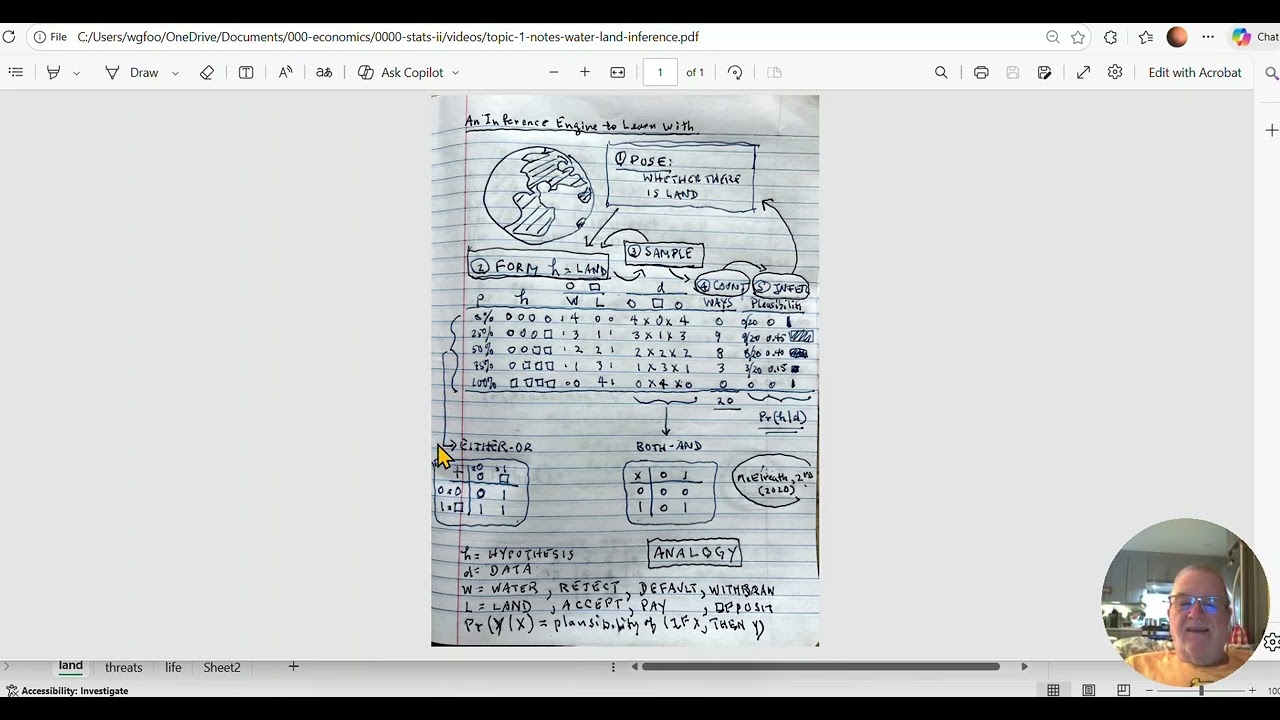 File C:/Users/wgfoo/OneDrive/Documents/000-economics/0000-stats-ii/videos/topic-1-notes-water-land-inference.pdf
Chat
Draw
Ask Copilot
1 of 1
Edit with Acrobat
An Inference Engine to Learn with
① POSE:
WHETHER THERE
IS LAND
③ SAMPLE
② FORM h = LAND
④ COUNT
⑤ INFER
P h W L d WAYS Plausibility
0% 4 0 4 x 0 x 4 0 0/20 0
25% 3 1 3 x 1 x 3 9 9/20 0.45
50% 2 2 2 x 2 x 2 8 8/20 0.40
75% 1 3 1 x 3 x 1 3 3/20 0.15
100% 0 4 0 x 4 x 0 0 0 0
20
Pr(h|d)
EITHER-OR
BOTH-AND
+ 0 1
0x0 0 1
1x□ 1 1
x 0 1
0 0 0
1 0 1
McElreath, 2nd
(2020)
h = HYPOTHESIS
ANALOGY
d = DATA
W = WATER, REJECT, DEFAULT, WITHDRAW
L = LAND, ACCEPT, PAY,
Pr(Y|X) = plausibility of (IF X, THEN Y)
land threats life Sheet2
Accessibility: Investigate
100